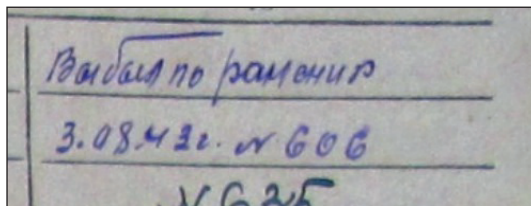 Выбыл по ранению
3.08.43г. № 606
№ 635